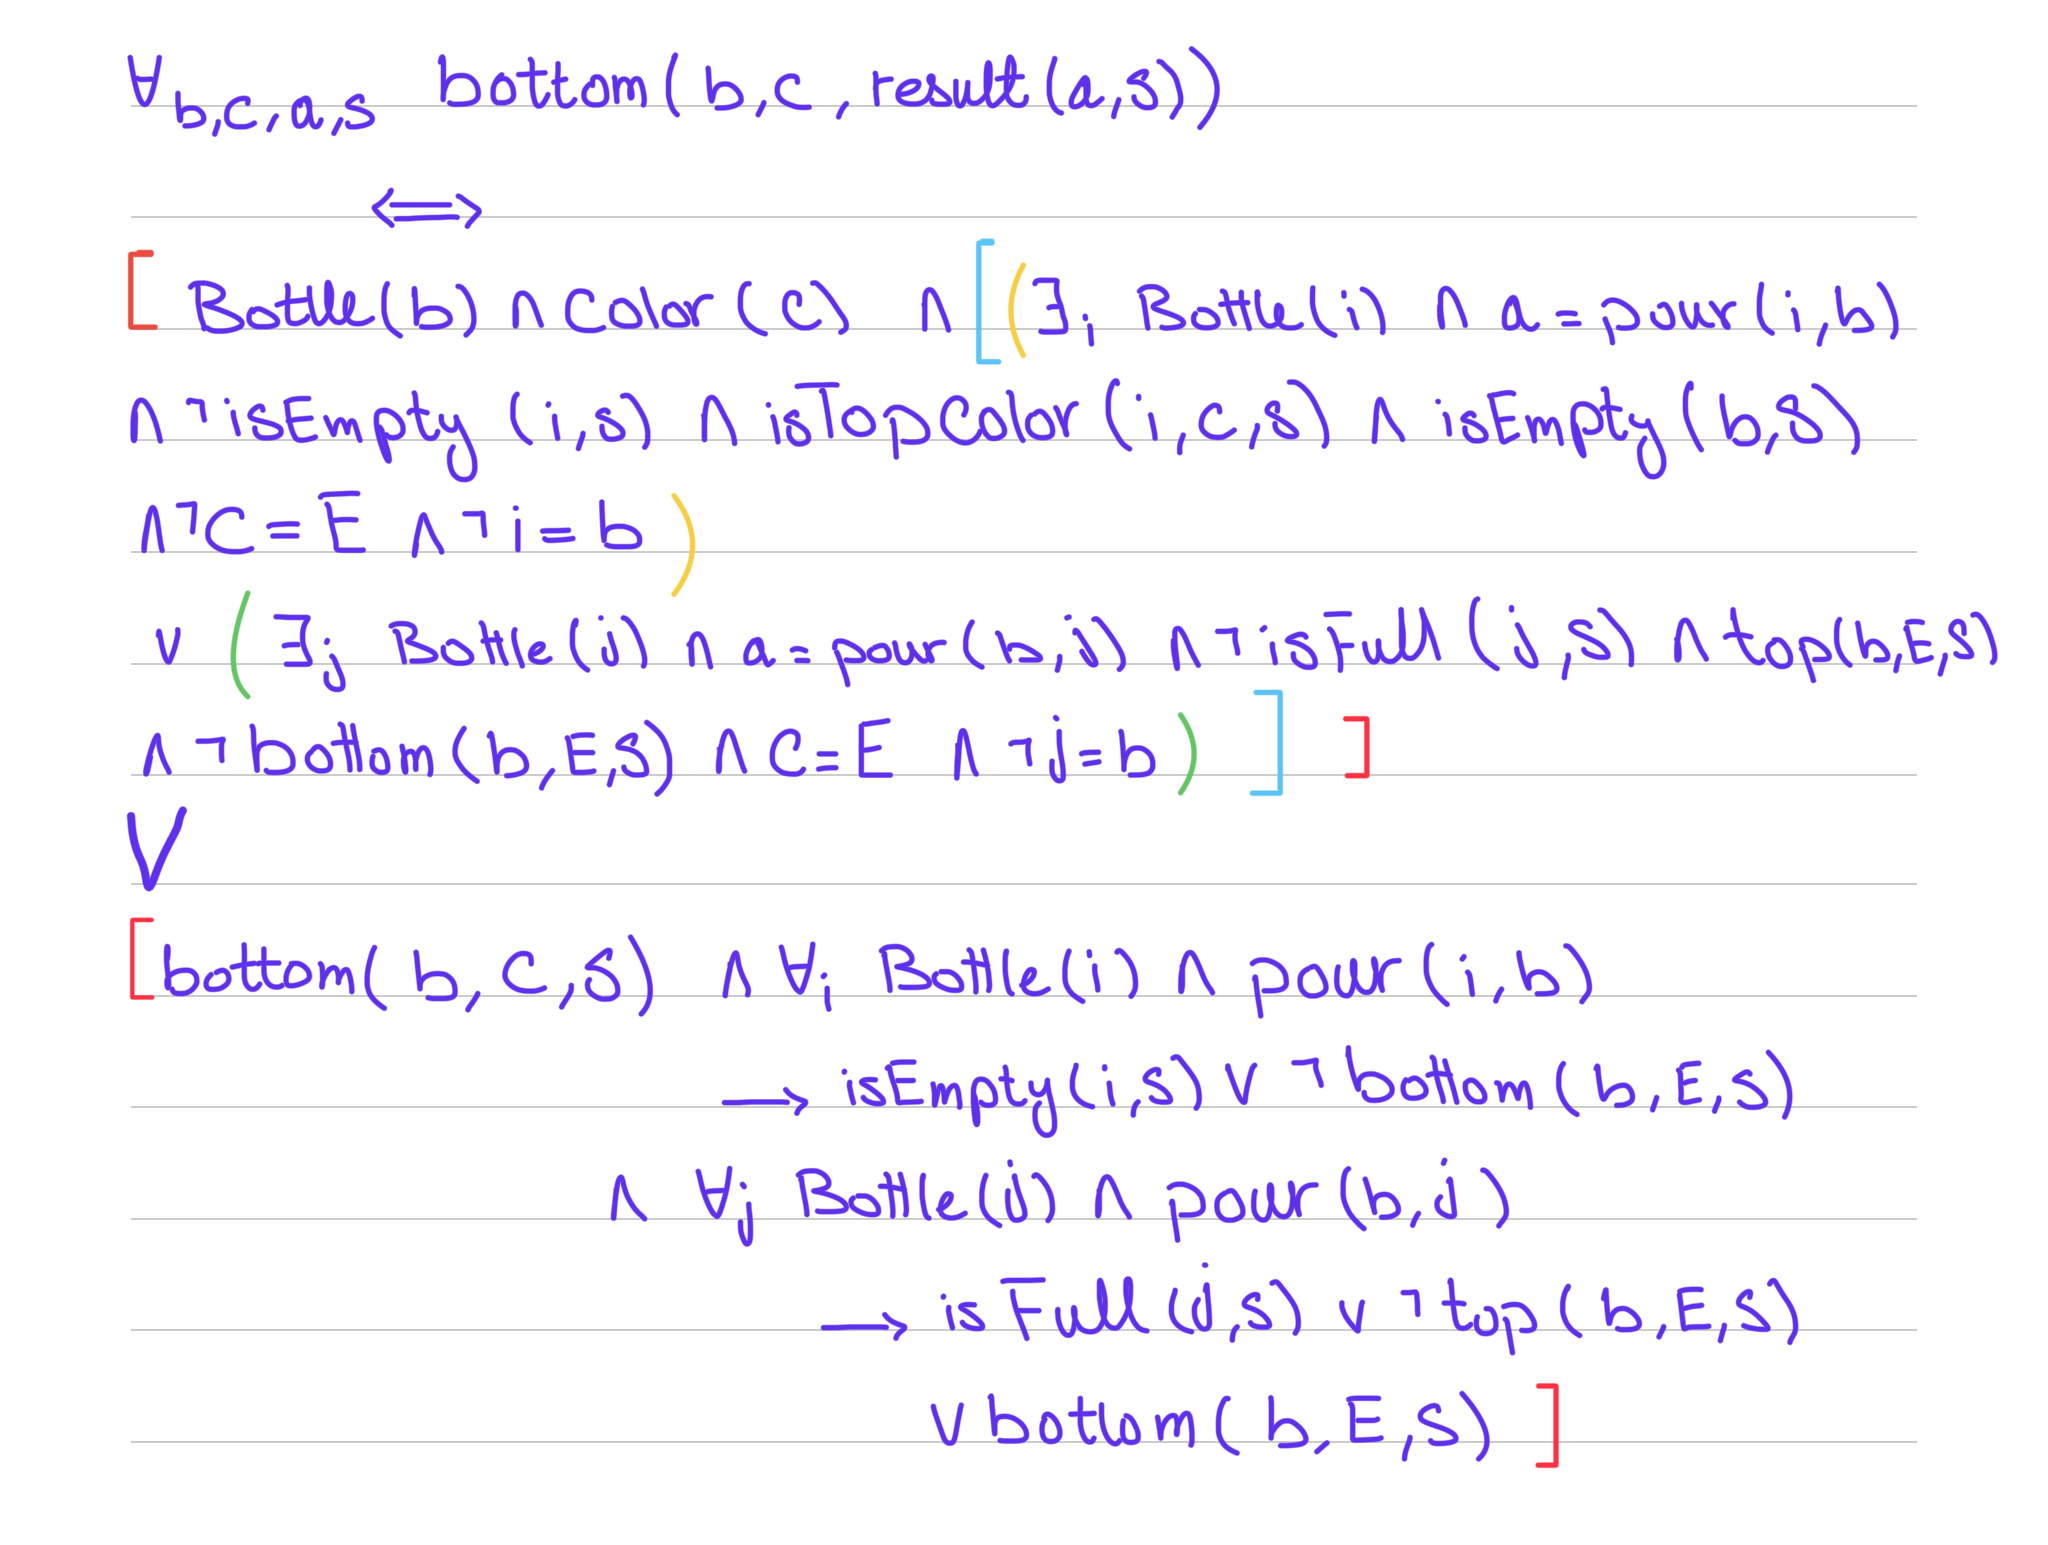 ∀b,c,a,s bottom(b,c,result(a,s))
⟺
[ Bottle(b) ∧ Color(c) ∧ [ ( ∃i Bottle(i) ∧ a=pour(i,b)
∧ ¬isEmpty(i,s) ∧ isTopColor(i,c,s) ∧ isEmpty(b,s)
∧ ¬C=E ∧ ¬i=b )
∨ ( ∃j Bottle(j) ∧ a=pour(b,j) ∧ ¬isFull(j,s) ∧ top(b,E,S)
∧ ¬bottom(b,E,S) ∧ C=E ∧ ¬j=b ) ] ]
∨
[ bottom(b,C,S) ∧ ∀i Bottle(i) ∧ pour(i,b)
→ isEmpty(i,s) ∨ ¬bottom(b,E,S)
∧ ∀j Bottle(j) ∧ pour(b,j)
→ isFull(j,s) ∨ ¬top(b,E,S)
∨ bottom(b,E,S) ]